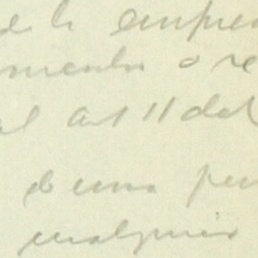 de la empre
mento o re
el art 11 del
de una per
cualquier